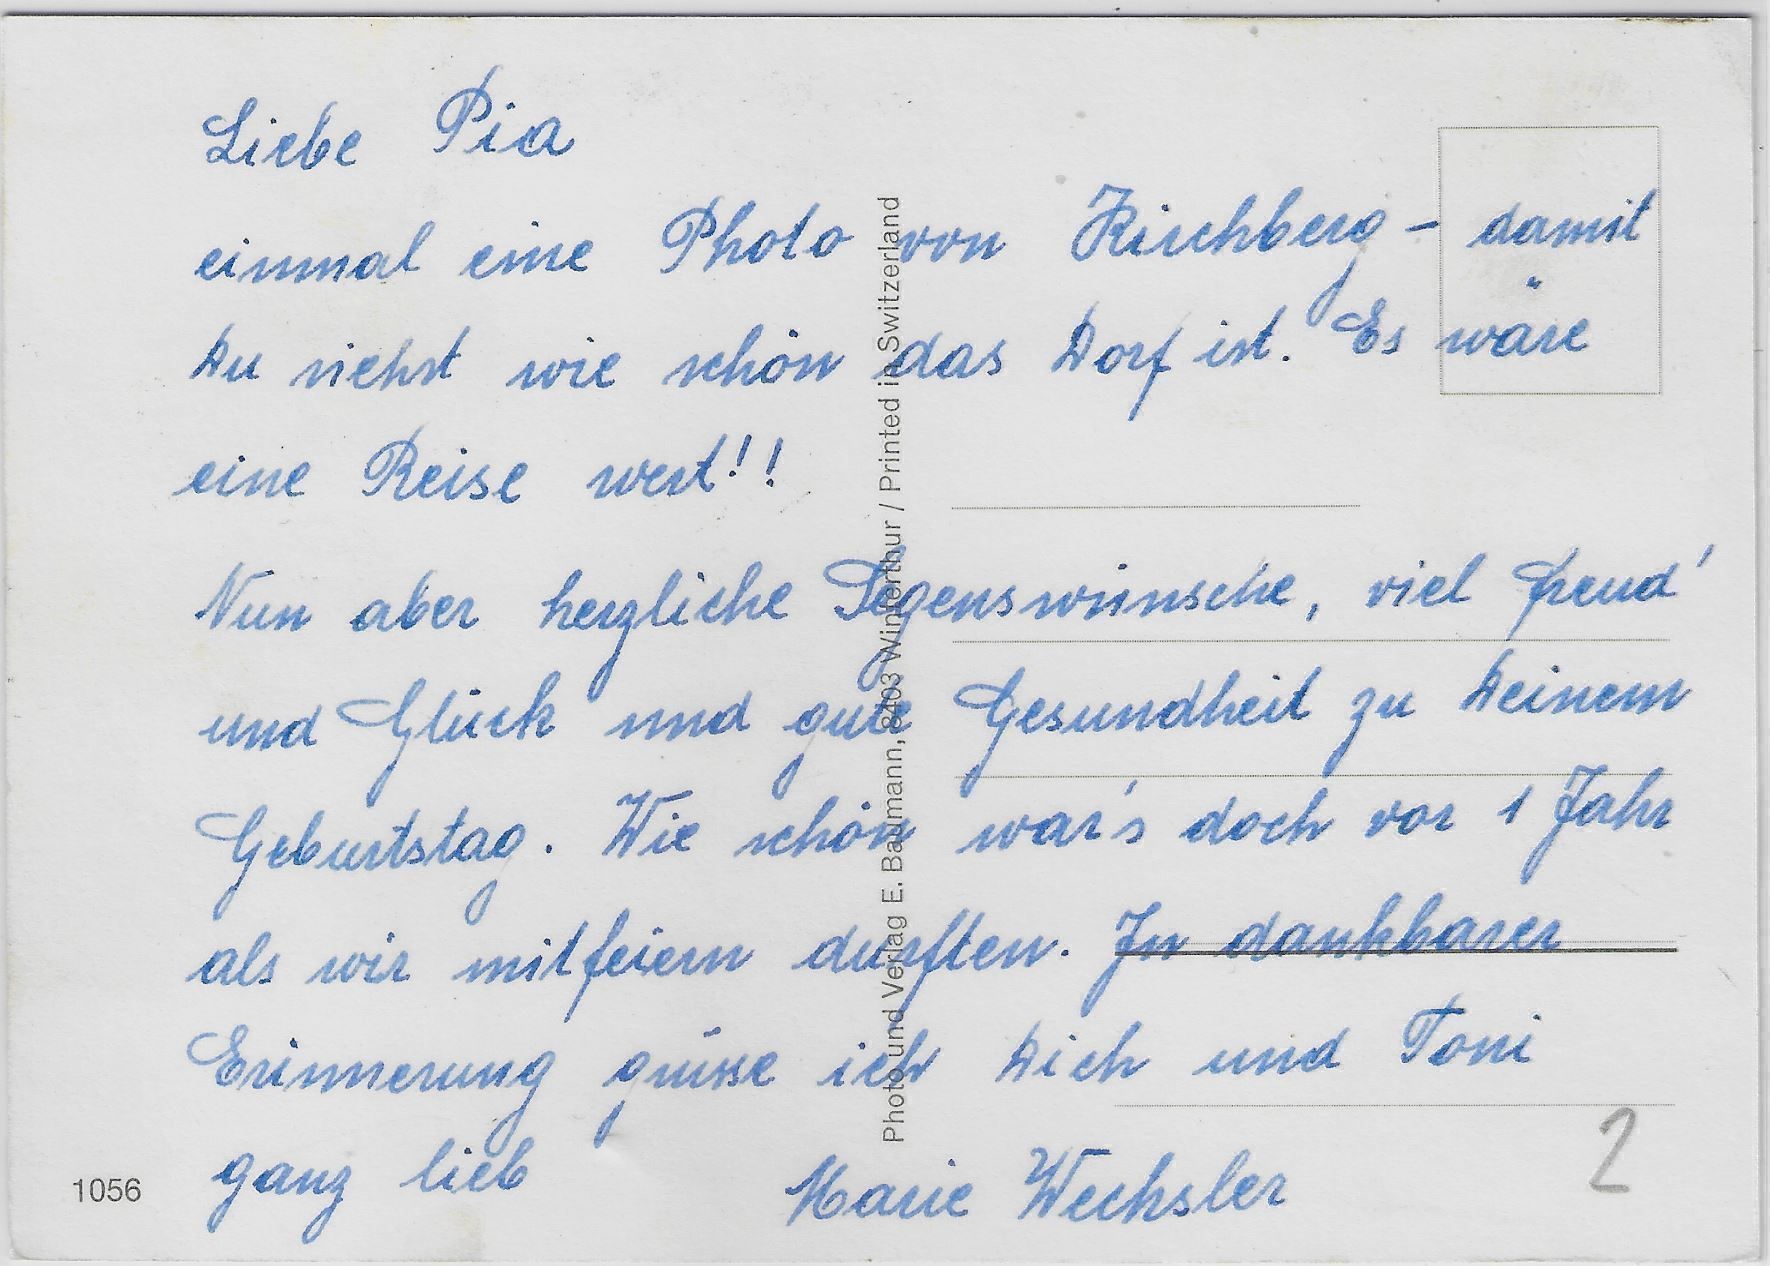 Liebe Pia
einmal eine Photo von Kirchberg – damit
Du siehst wie schön das Dorf ist. Es wäre
eine Reise wert!!
Nun aber herzliche Segenswünsche, viel Freud'
und Glück und gute Gesundheit zu Deinem
Geburtstag. Wie schön war's doch vor 1 Jahr
als wir mitfeiern durften. In dankbarer
Erinnerung grüsse ich Dich und Toni
ganz lieb
Marie Wechsler
Photo und Verlag E. Baumann, 8403 Winterthur / Printed in Switzerland
1056
2